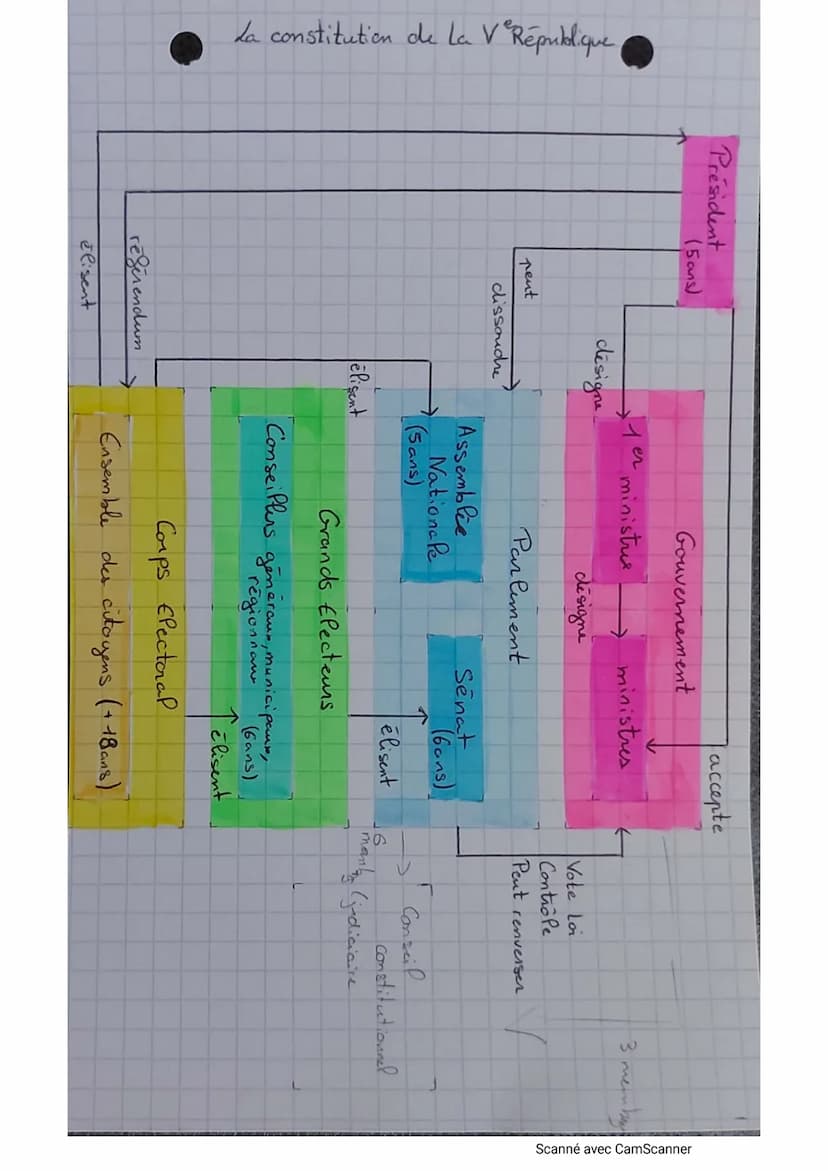 La constitution de la Vᵉ République
Président
(5ans)
élisent
référendum
peut
dissoudre
désigne
accepte
Gouvernement
1er ministre
désigne
ministres
Parlement
Assemblée
Nationale
(5ans)
Sénat
(6ans)
élisent
élisent
Grands électeurs
Conseillers généraux, municipaux,
régionaux (6ans)
élisent
Corps électoral
Ensemble des citoyens (+18ans)
Vote loi
Contrôle
Peut renverser
Conseil
constitutionnel
6
(judiciaire
3
Scanné avec CamScanner